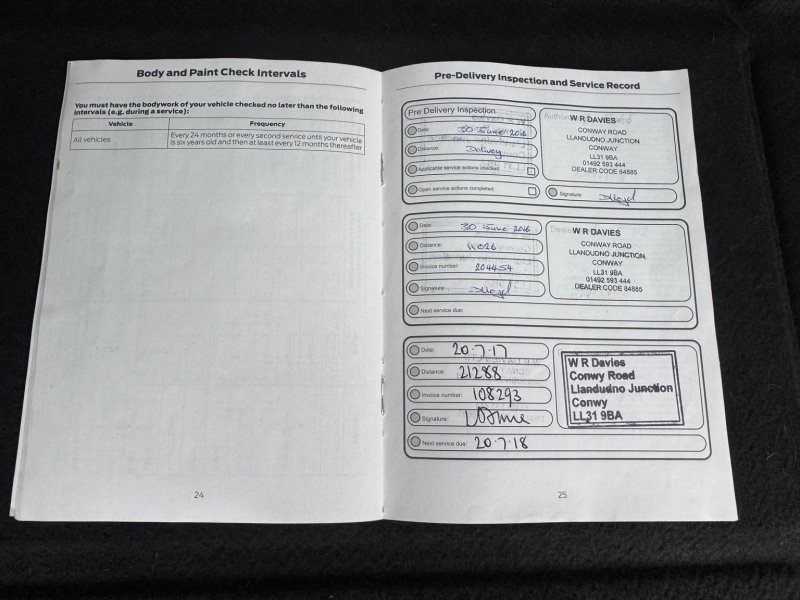 Body and Paint Check Intervals
You must have the bodywork of your vehicle checked no later than the following
intervals (e.g. during a service):
Vehicle Frequency
All vehicles Every 24 months or every second service until your vehicle
is six years old and then at least every 12 months thereafter
24
Pre-Delivery Inspection and Service Record
Pre Delivery Inspection
Date: 30 June 2016
Distance: Delivery
Applicable service actions checked:
Open service actions completed:
W R DAVIES
CONWAY ROAD
LLANDUDNO JUNCTION
CONWAY
LL31 9BA
01492 593 444
DEALER CODE 84885
Signature:
Date: 30 June 2016
Distance: 11026
Invoice number: 204454
Signature:
Next service due:
W R DAVIES
CONWAY ROAD
LLANDUDNO JUNCTION
CONWAY
LL31 9BA
01492 593 444
DEALER CODE 84885
Date: 20-7-17
Distance: 21288
Invoice number: 108293
Signature:
Next service due: 20-7-18
W R Davies
Conwy Road
Llandudno Junction
Conwy
LL31 9BA
25